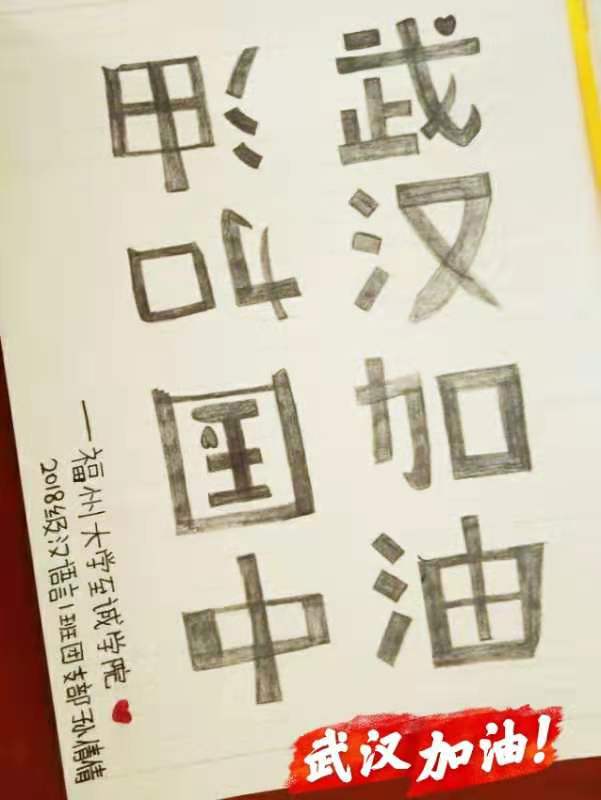 武汉加油
中国加油
—福州大学至诚学院
2018级汉语言1班团支部孙倩倩
武汉加油!